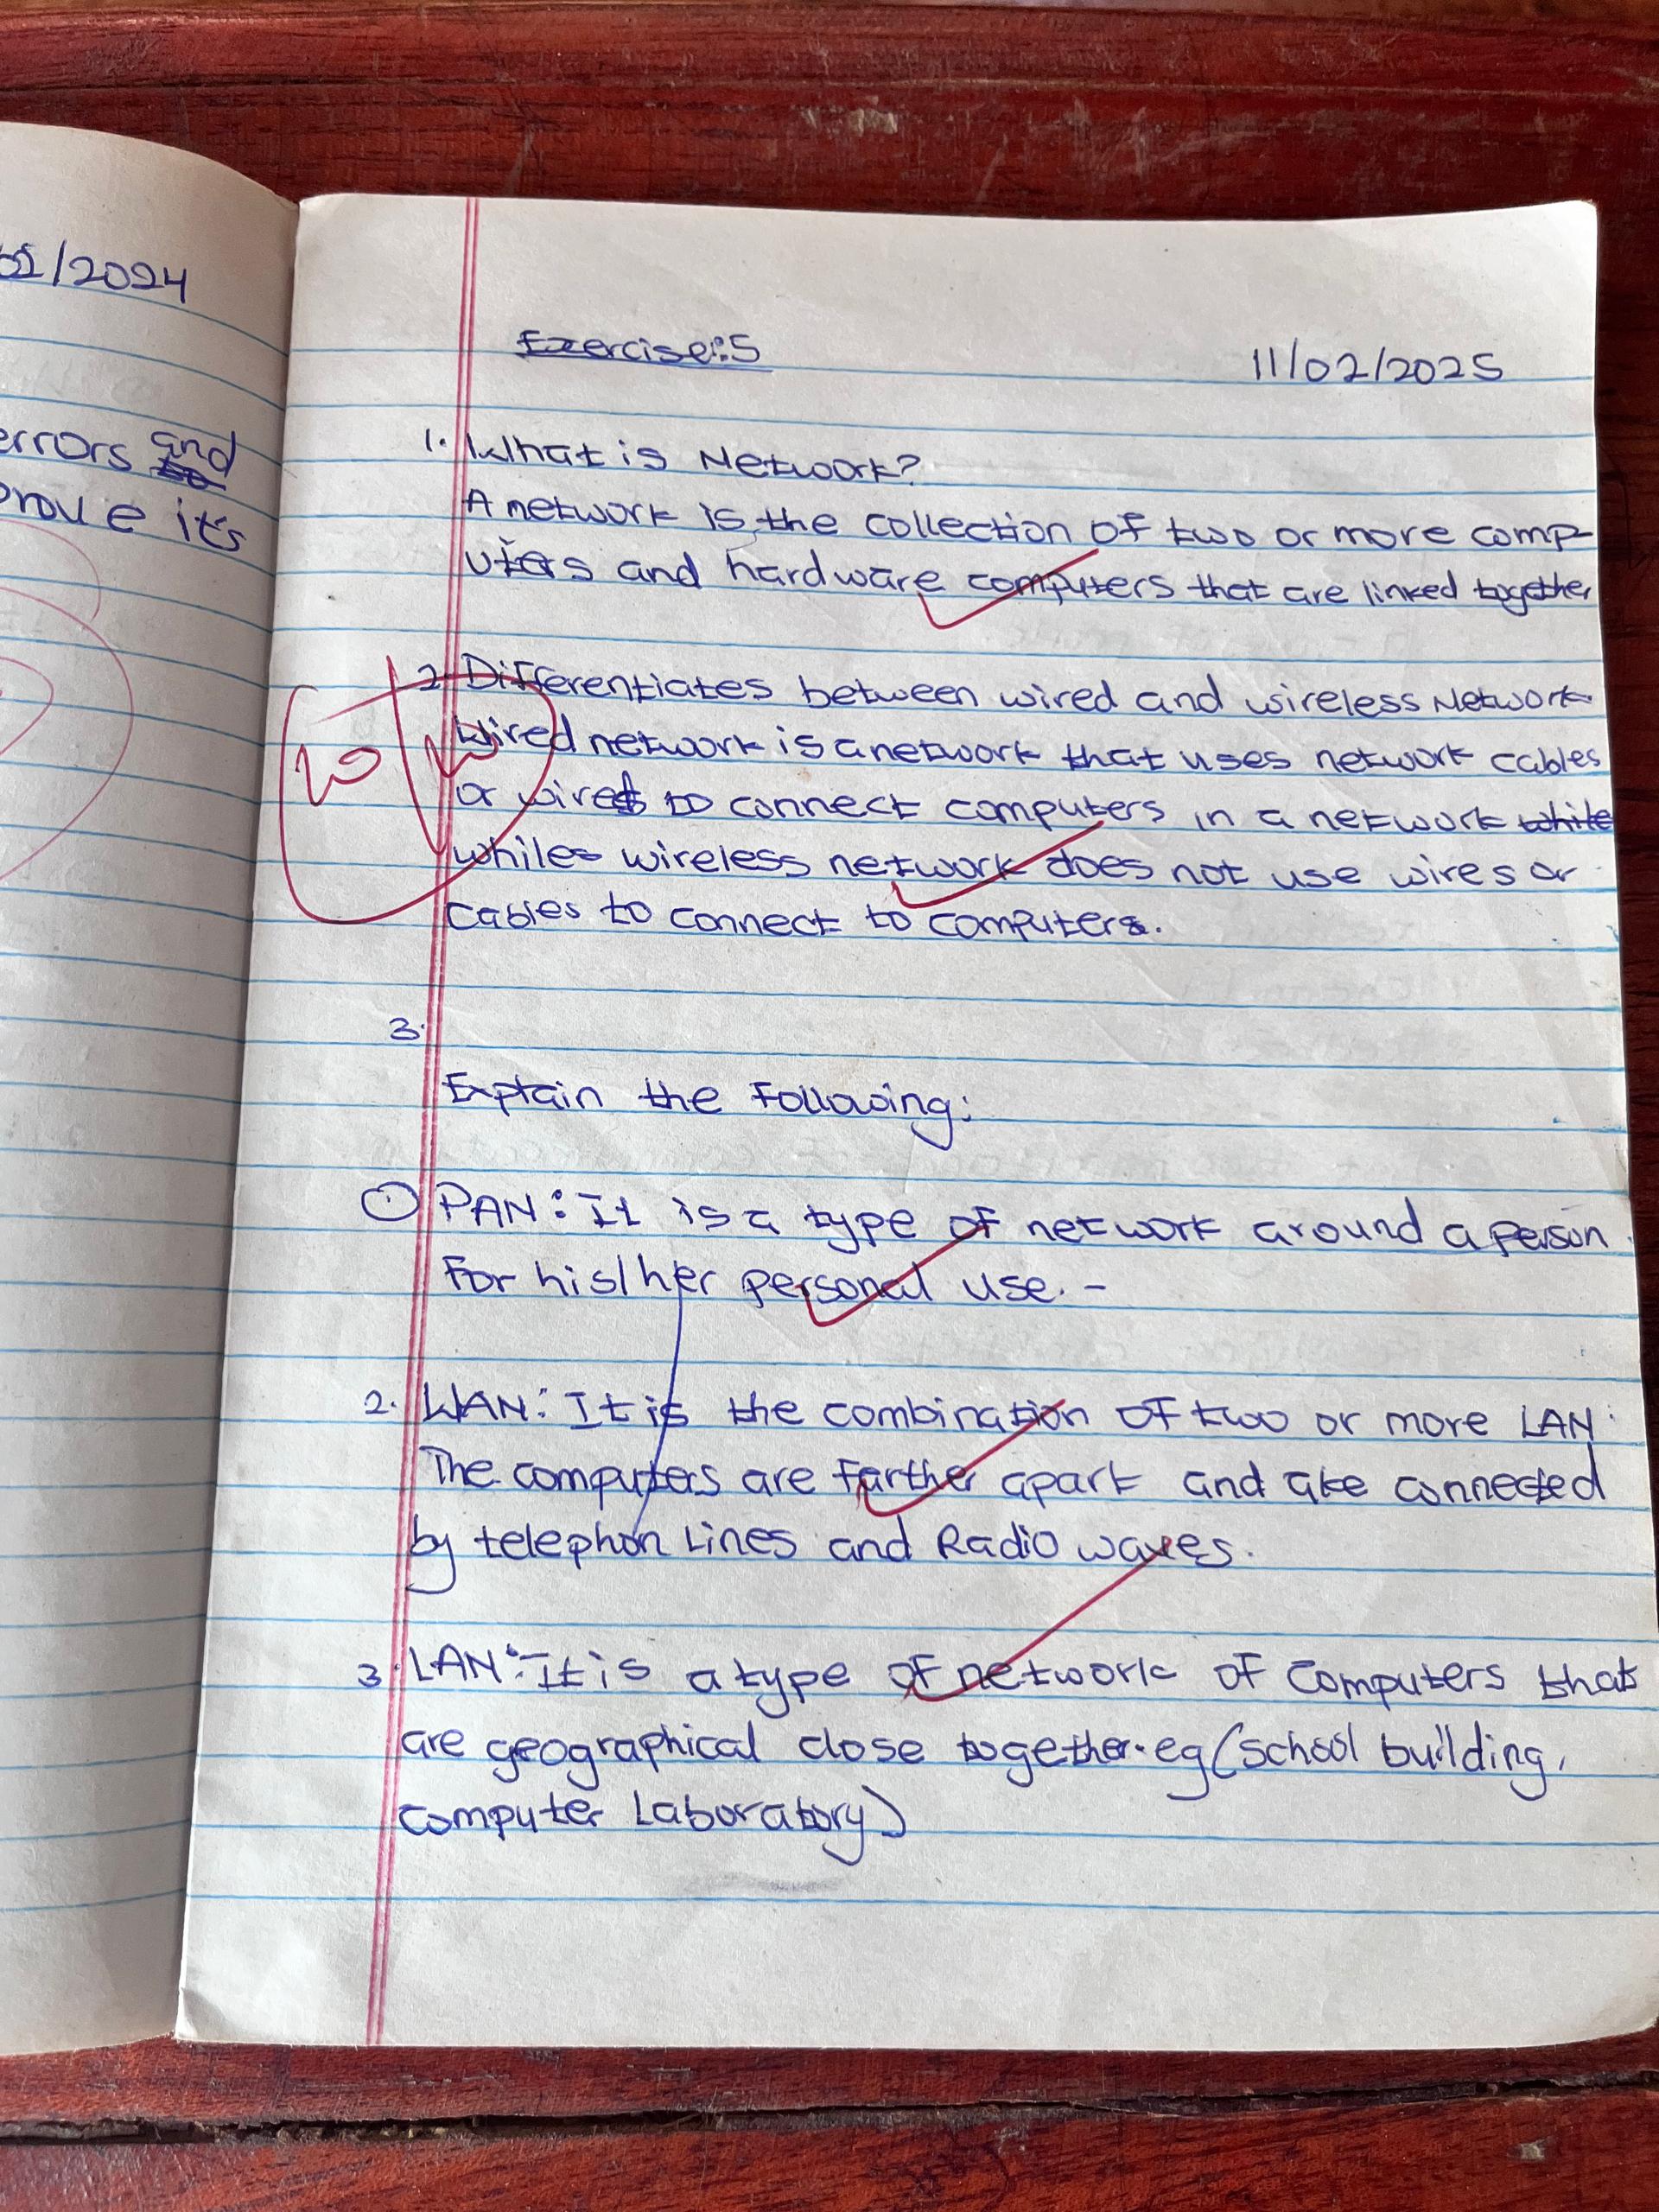 /2024
errors and
prove it's
Exercise:5
11/02/2025
1. What is Network?
A network is the collection of two or more comp-
uters and hardware computers that are linked together
2. Differentiates between wired and wireless Network
Wired network is a network that uses network cables
or wires to connect computers in a network while
while wireless network does not use wires or
cables to connect to computers.
3.
Explain the Following:
1 PAN: It is a type of network around a person
For his/her personal use. -
2. WAN: It is the combination of two or more LAN.
The computers are farther apart and are connected
by telephon Lines and Radio waves.
3. LAN: It is a type of network of Computers that
are geographical close together. eg (school building,
computer Laboratory)